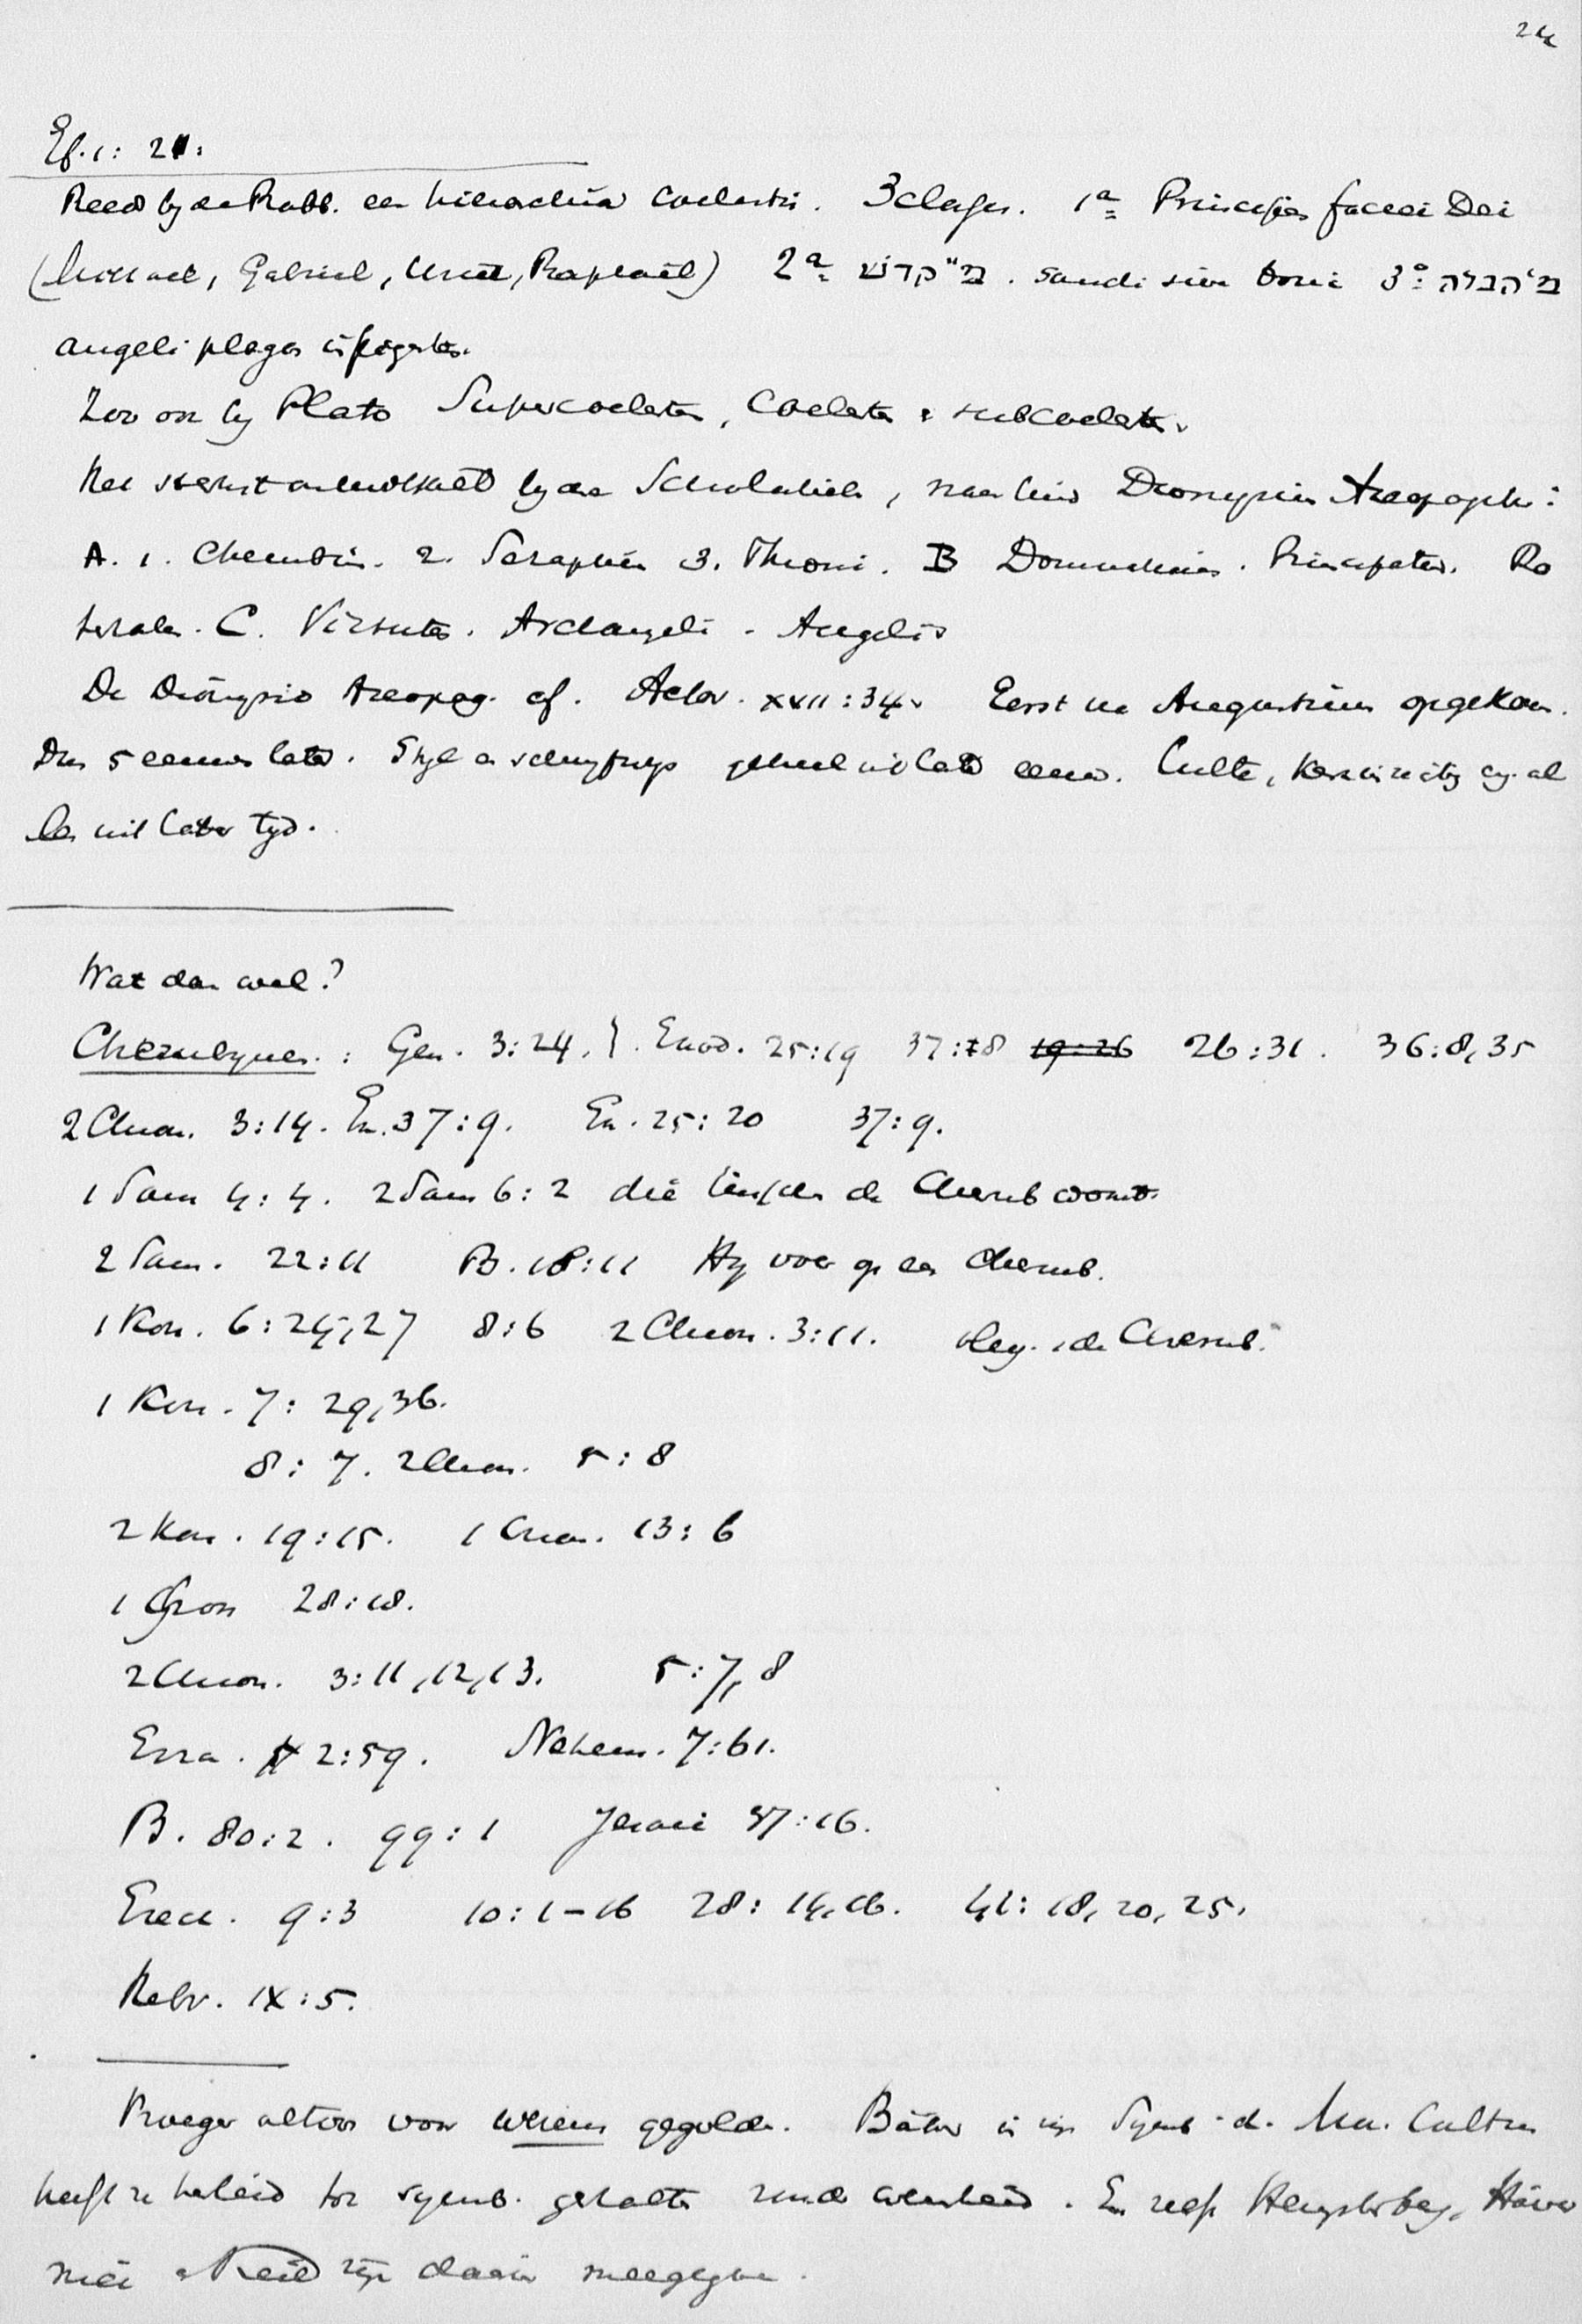 24
Ef. 1: 21:
Reed by de Rabb. een hierarchia coelestis. 3 classes. 1a Principes faciei Dei
(Michael, Gabriel, Uriel, Raphael) 2a קדש . sancti sive boni 3o
angeli plagas infligentes.
Zoo ook by Plato Supercoelestes, Coelestes & subcoelestes.
Het sterkst ontwikkeld by de Scholastiek, naar Dionysius Areopagita:
A. 1. Cherubim. 2. Seraphim 3. Throni. B Dominationes. Principatus. Po
testates. C. Virtutes. Archangeli - Angeli
De Dionysio Areopag. cf. Actor. XVII:34. Eerst na Augustinus opgekom.
Dus 5 eeuwen later. Styl en geheel uit later eeuw. Culte, al
les uit later tyd.
Wat dan wel?
Cherubynen. : Gen. 3:24. Exod. 25:19 37:8 19:26 26:31. 36:8,35
2 Chron. 3:14. Ex. 37:9. Ex. 25:20 37:9.
1 Sam 4:4. 2 Sam 6:2 die tusschen de Cherub woont.
2 Sam. 22:11 Ps. 18:11 Hy voer op een Cherub.
1 Kon. 6:24,27 8:6 2 Chron. 3:11. vleug. der Cherub.
1 Kon. 7: 29,36.
8: 7. 2 Chron. 5:8
2 Kon. 19:15. 1 Chron. 13:6
1 Chron 28:18.
2 Chron. 3:11,12,13. 5:7,8
Ezra. 2:59. Nehem. 7:61.
Ps. 80:2. 99:1 Jesaie 37:16.
Ezech. 9:3 10:1-16 28: 14,16. 41: 18, 20, 25.
Hebr. IX:5.
Vroeger altoos voor wezens gegolden. Bähr in zyn Symb. d. Mos. Cultus
heeft ze herleid tot symb. gestalten zonder wezenheid. En zelfs Hengstenberg, Häver
nick & Keil zyn daarin meegegaan.